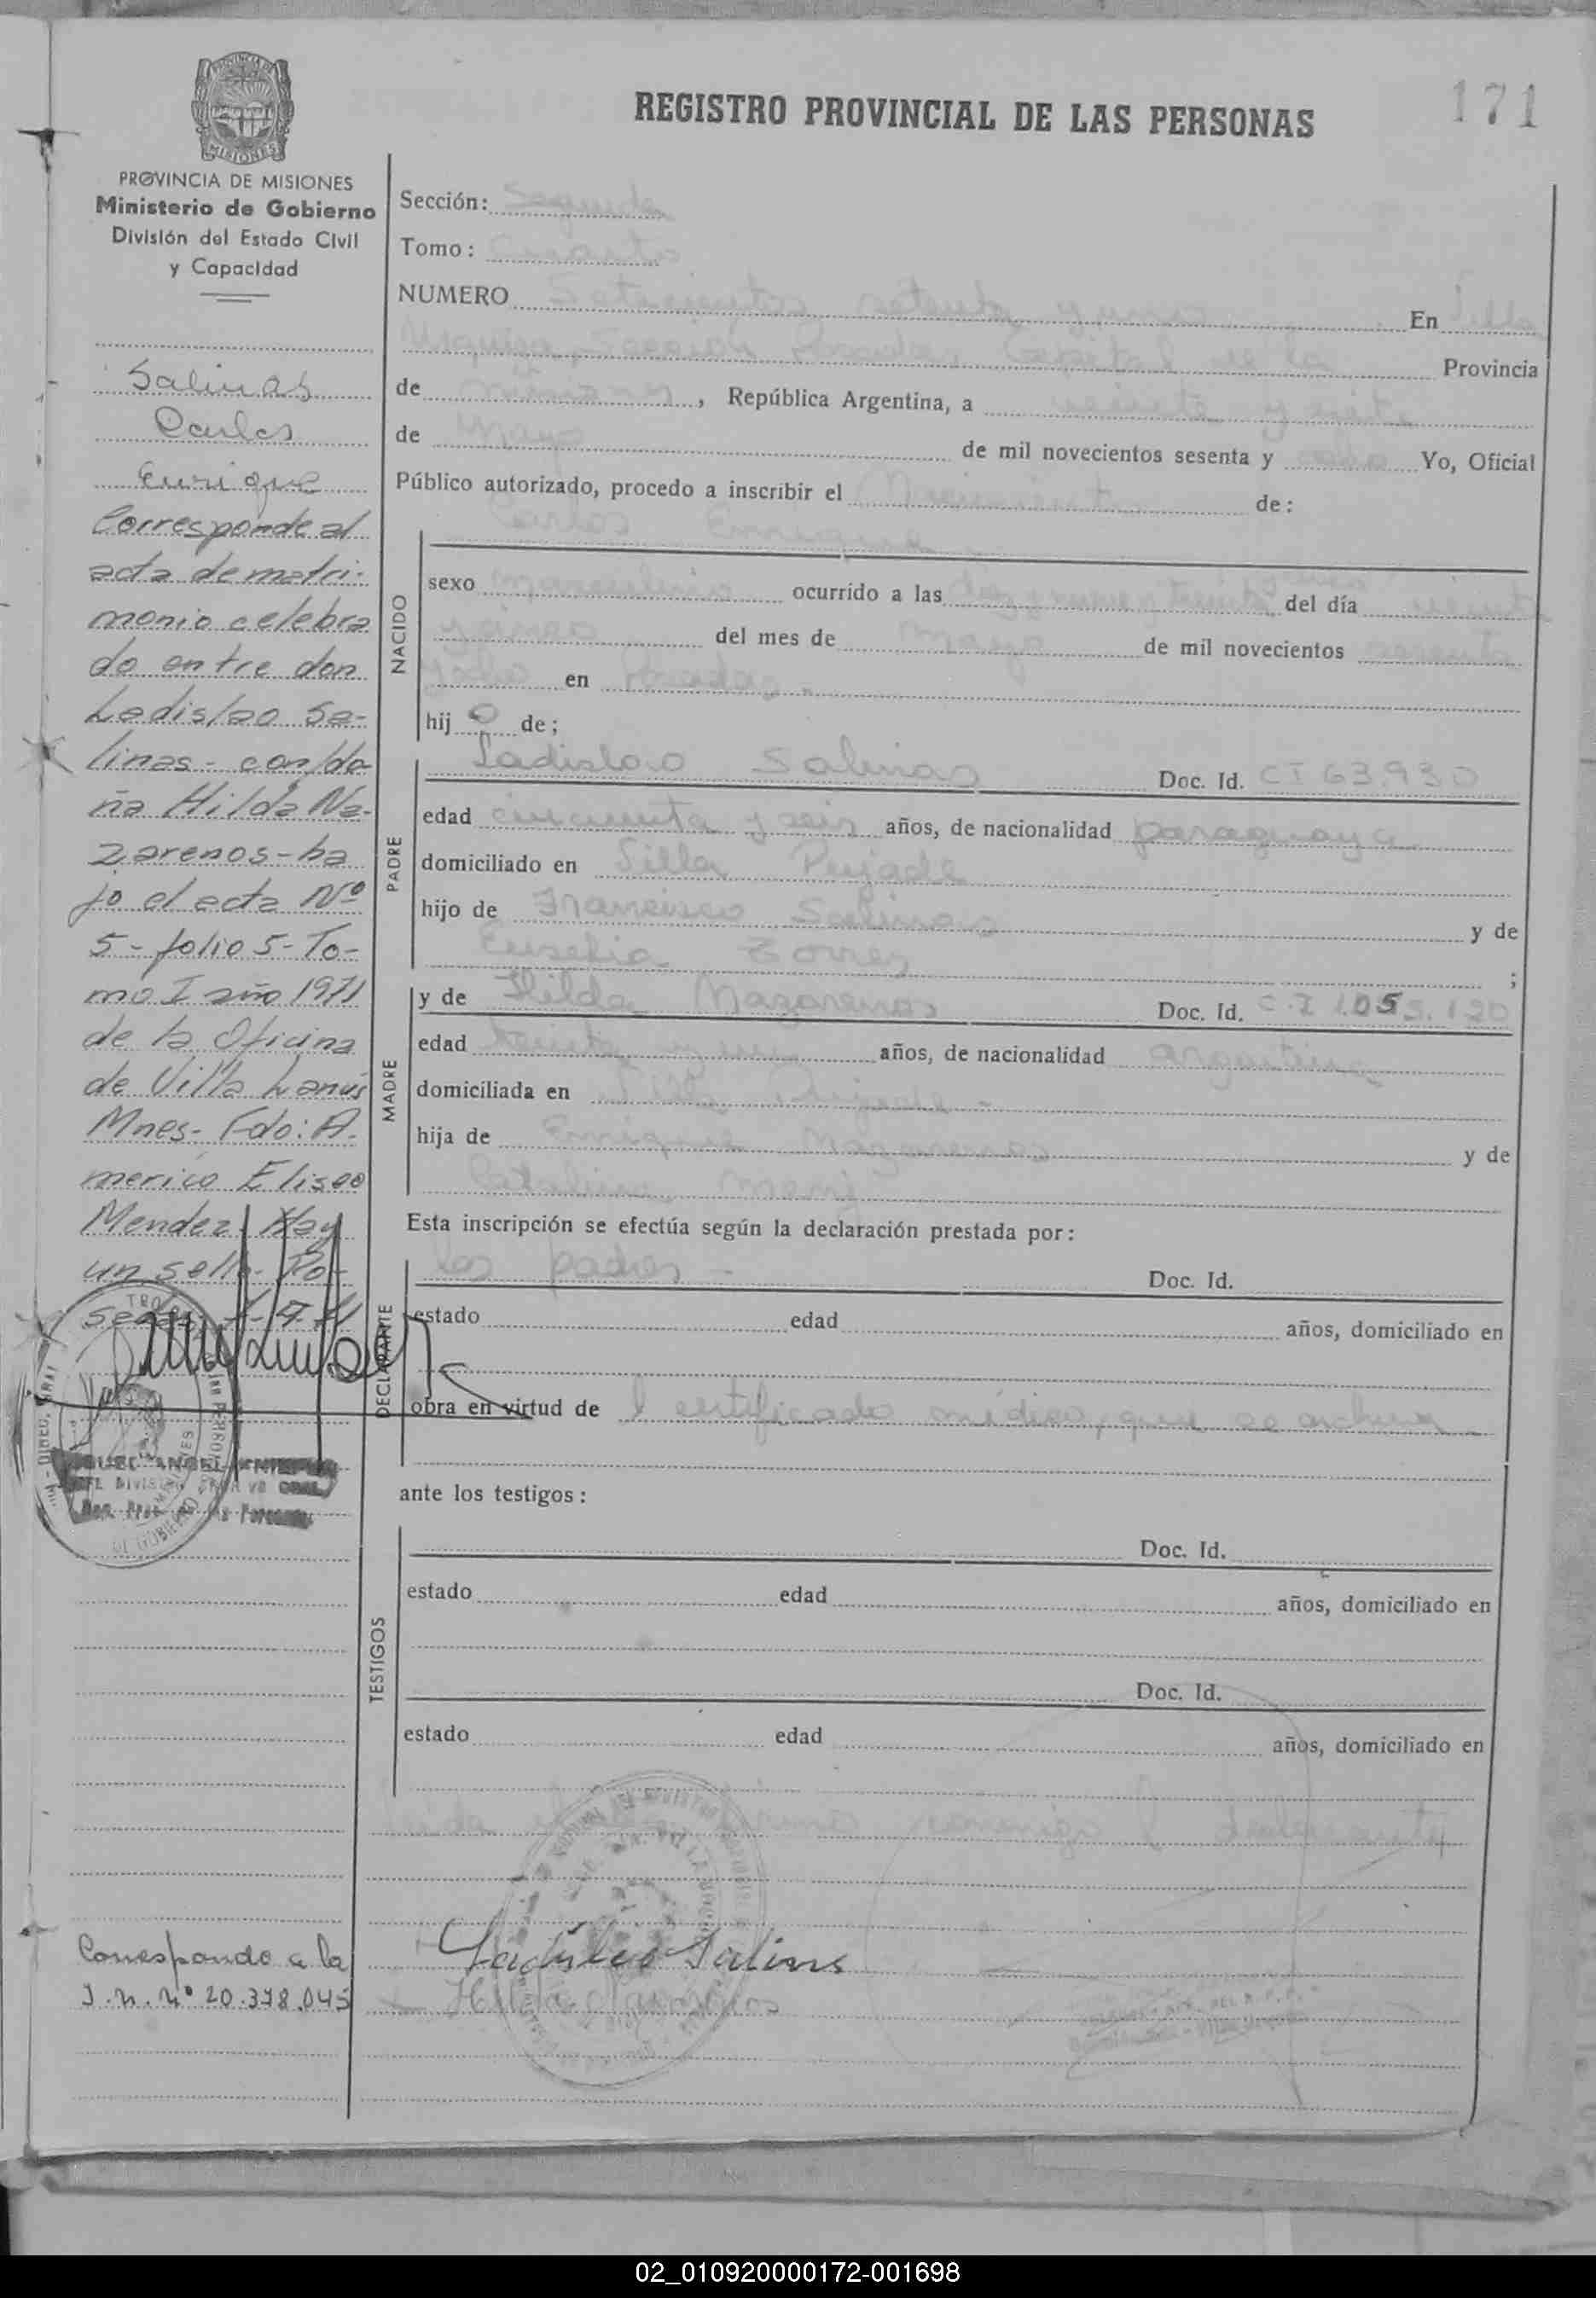 171
REGISTRO PROVINCIAL DE LAS PERSONAS
PROVINCIA DE MISIONES
Ministerio de Gobierno
División del Estado Civil
y Capacidad
Salinas
Carlos
Enrique
Corresponde al
acta de matri-
monio celebra
do entre don
Ladislao Sa-
linas - con do-
ña Hilda Na-
zarenos - ba
jo el acta Nº
5 - folio 5 - To-
mo I año 1971
de la Oficina
de Villa Lanús
Mnes - Fdo: A.
merico Eliseo
Mendez Hay
un sello Po-
Corresponde a la
Sección: Segunda
Tomo: Cuarto
NUMERO Setecientos setenta y uno En Villa
Urquiza, Sección Posadas, Capital de la Provincia
de Misiones, República Argentina, a veinte y siete
de Mayo de mil novecientos sesenta y ocho Yo, Oficial
Público autorizado, procedo a inscribir el Nacimiento de:
Carlos Enrique
NACIDO
sexo masculino ocurrido a las del día veinte
y cinco del mes de Mayo de mil novecientos sesenta
y ocho en Posadas.
hijo de;
PADRE
Ladislao Salinas Doc. Id. CI 63.930
edad cincuenta y seis años, de nacionalidad paraguaya
domiciliado en Villa Pujade
hijo de Francisco Salinas y de
Eusebia Torres ;
MADRE
y de Hilda Nazarenos Doc. Id. C.I 1.055.120
edad treinta y años, de nacionalidad argentina
domiciliada en Villa Pujade -
hija de Enrique Nazarenos y de
Catalina
Esta inscripción se efectúa según la declaración prestada por:
DECLARANTE
los padres - Doc. Id.
estado edad años, domiciliado en
obra en virtud de l certificado médico, que se archiva.
ante los testigos:
TESTIGOS
Doc. Id.
estado edad años, domiciliado en
Doc. Id.
estado edad años, domiciliado en
Ladislao Salinas
Hilda
02_010920000172-001698